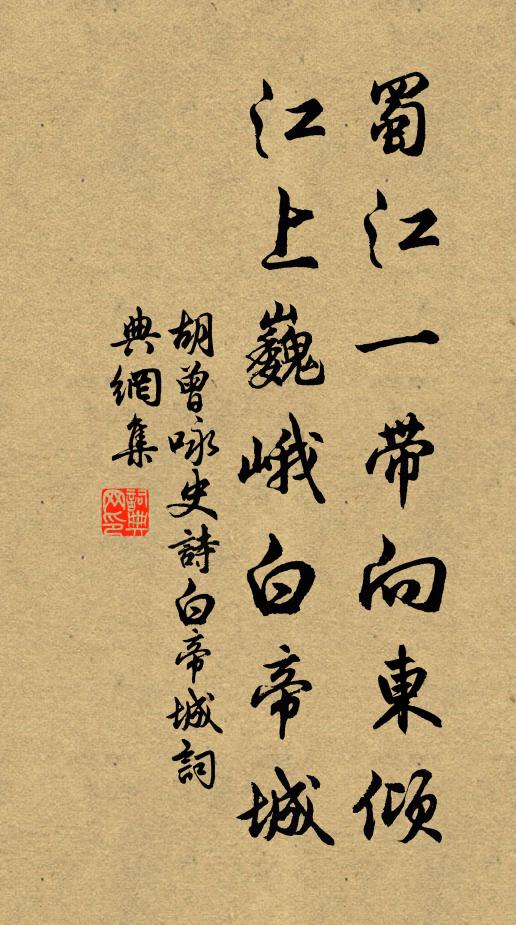 蜀江一帶向東傾
江上巍峨白帝城
胡曾咏史詩白帝城詞
典網集
詞典網印